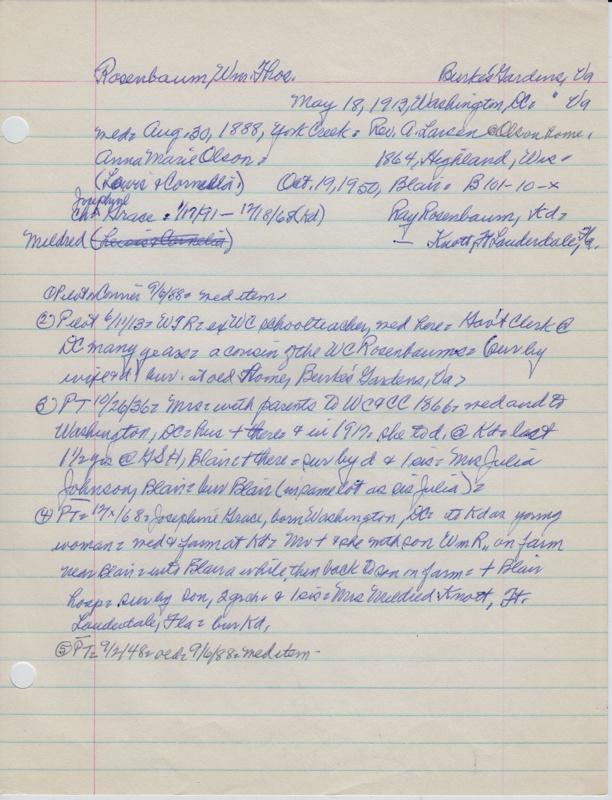 Rosenbaum, Wm. Thos. Burke's Gardens, Va
May 18, 1913, Washington, DC= " Va
med= Aug. 30, 1888, York Creek= Rev. A. Larsen @ Olson home.
Anna Marie Olson = 1864, Highland, Wis=
(Lewis & Cornelia) Oct. 19, 1950, Blair= B101-10-x
Josephine
Ch= Grace = /91- /68 (Kd) Ray Rosenbaum, Kd=
Mildred (Lewis & Cornelia) — Knott, Ft Lauderdale, Fla.
① Pilot 9/6/88= med item,
② Pilot 6/11/13= WTR= ex WC schoolteacher, med here= Gov't Clerk @
DC many years= a cousin of the WC Rosenbaums= (sur by
wife & d bur. at old Home, Burke's Gardens, Va)
③ PT 10/26/36= Mrs= with parents to WC & CC 1866= med and to
Washington, DC= hus + there= & in 191 she to d. @ Kd= last
1½ yrs @ GSH, Blair & + there= sur by d & 1 sis= Mrs Julia
Johnson, Blair= bur Blair (in same lot as sis Julia)=
④ PT= /68= Josephine Grace, born Washington, DC= to Kd as young
woman= med & farm at Kd= Mr + & she with son Wm R,, on farm
near Blair= into Blair a while, then back to son on farm= + Blair
hosp= sur by son, 2 grch= & 1 sis= Mrs Mildred Knott, Ft.
Lauderdale, Fla= bur Kd.
⑤ PT= 9/2/48= 9/6/88= med item-